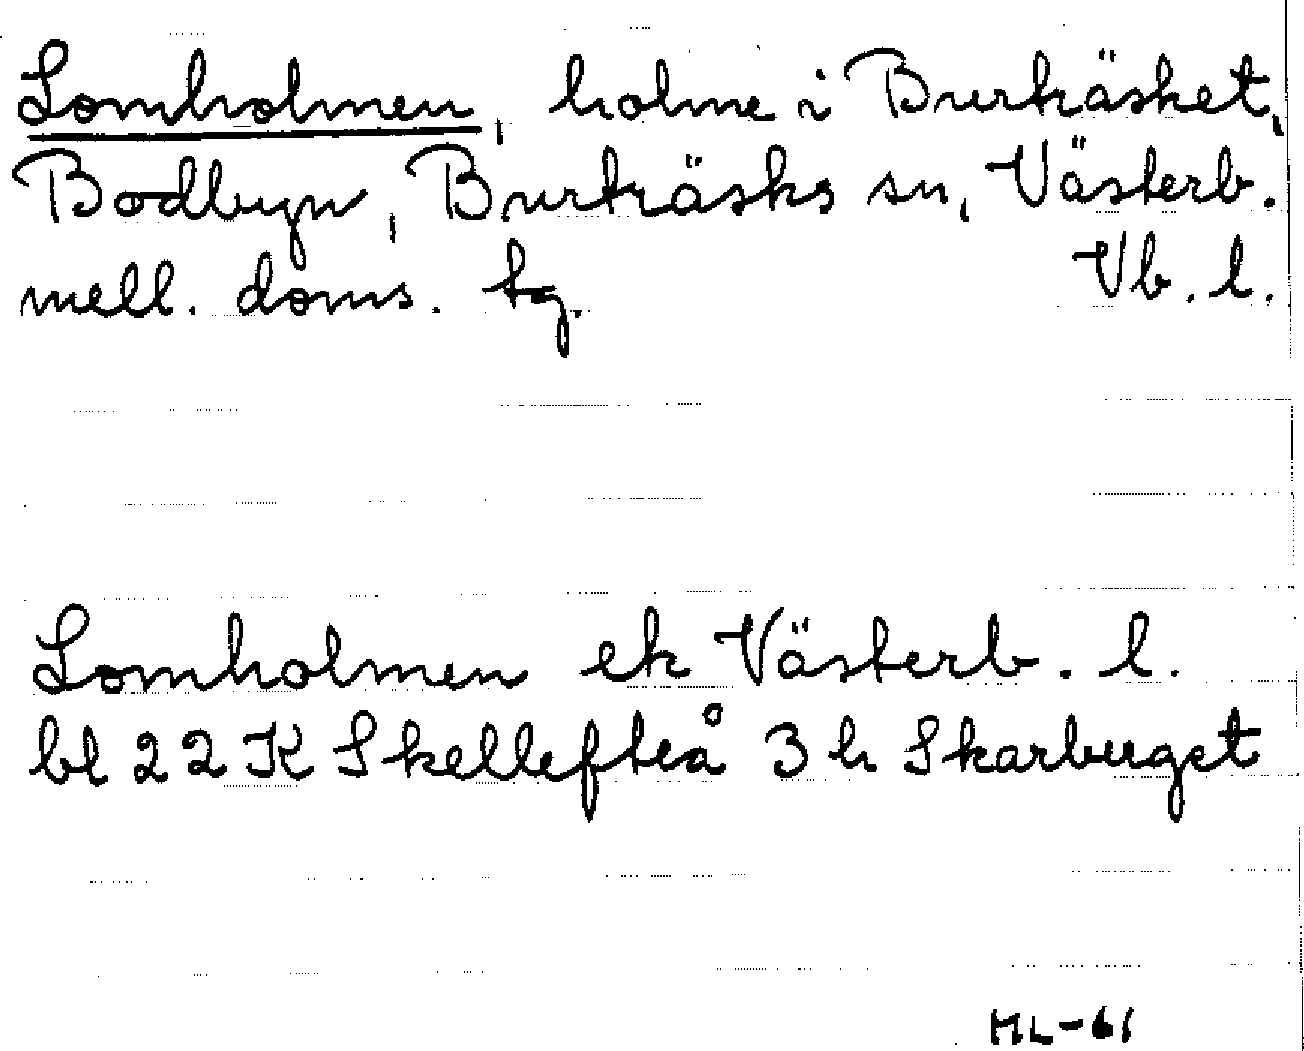 Lomholmen, holme i Burträsket,
Bodbyn, Burträsks sn, Västerb.
mell. doms. tg. Vb. l.
Lomholmen ek Västerb. l.
bl 22 K Skellefteå 3 h Skarburget
ML-61